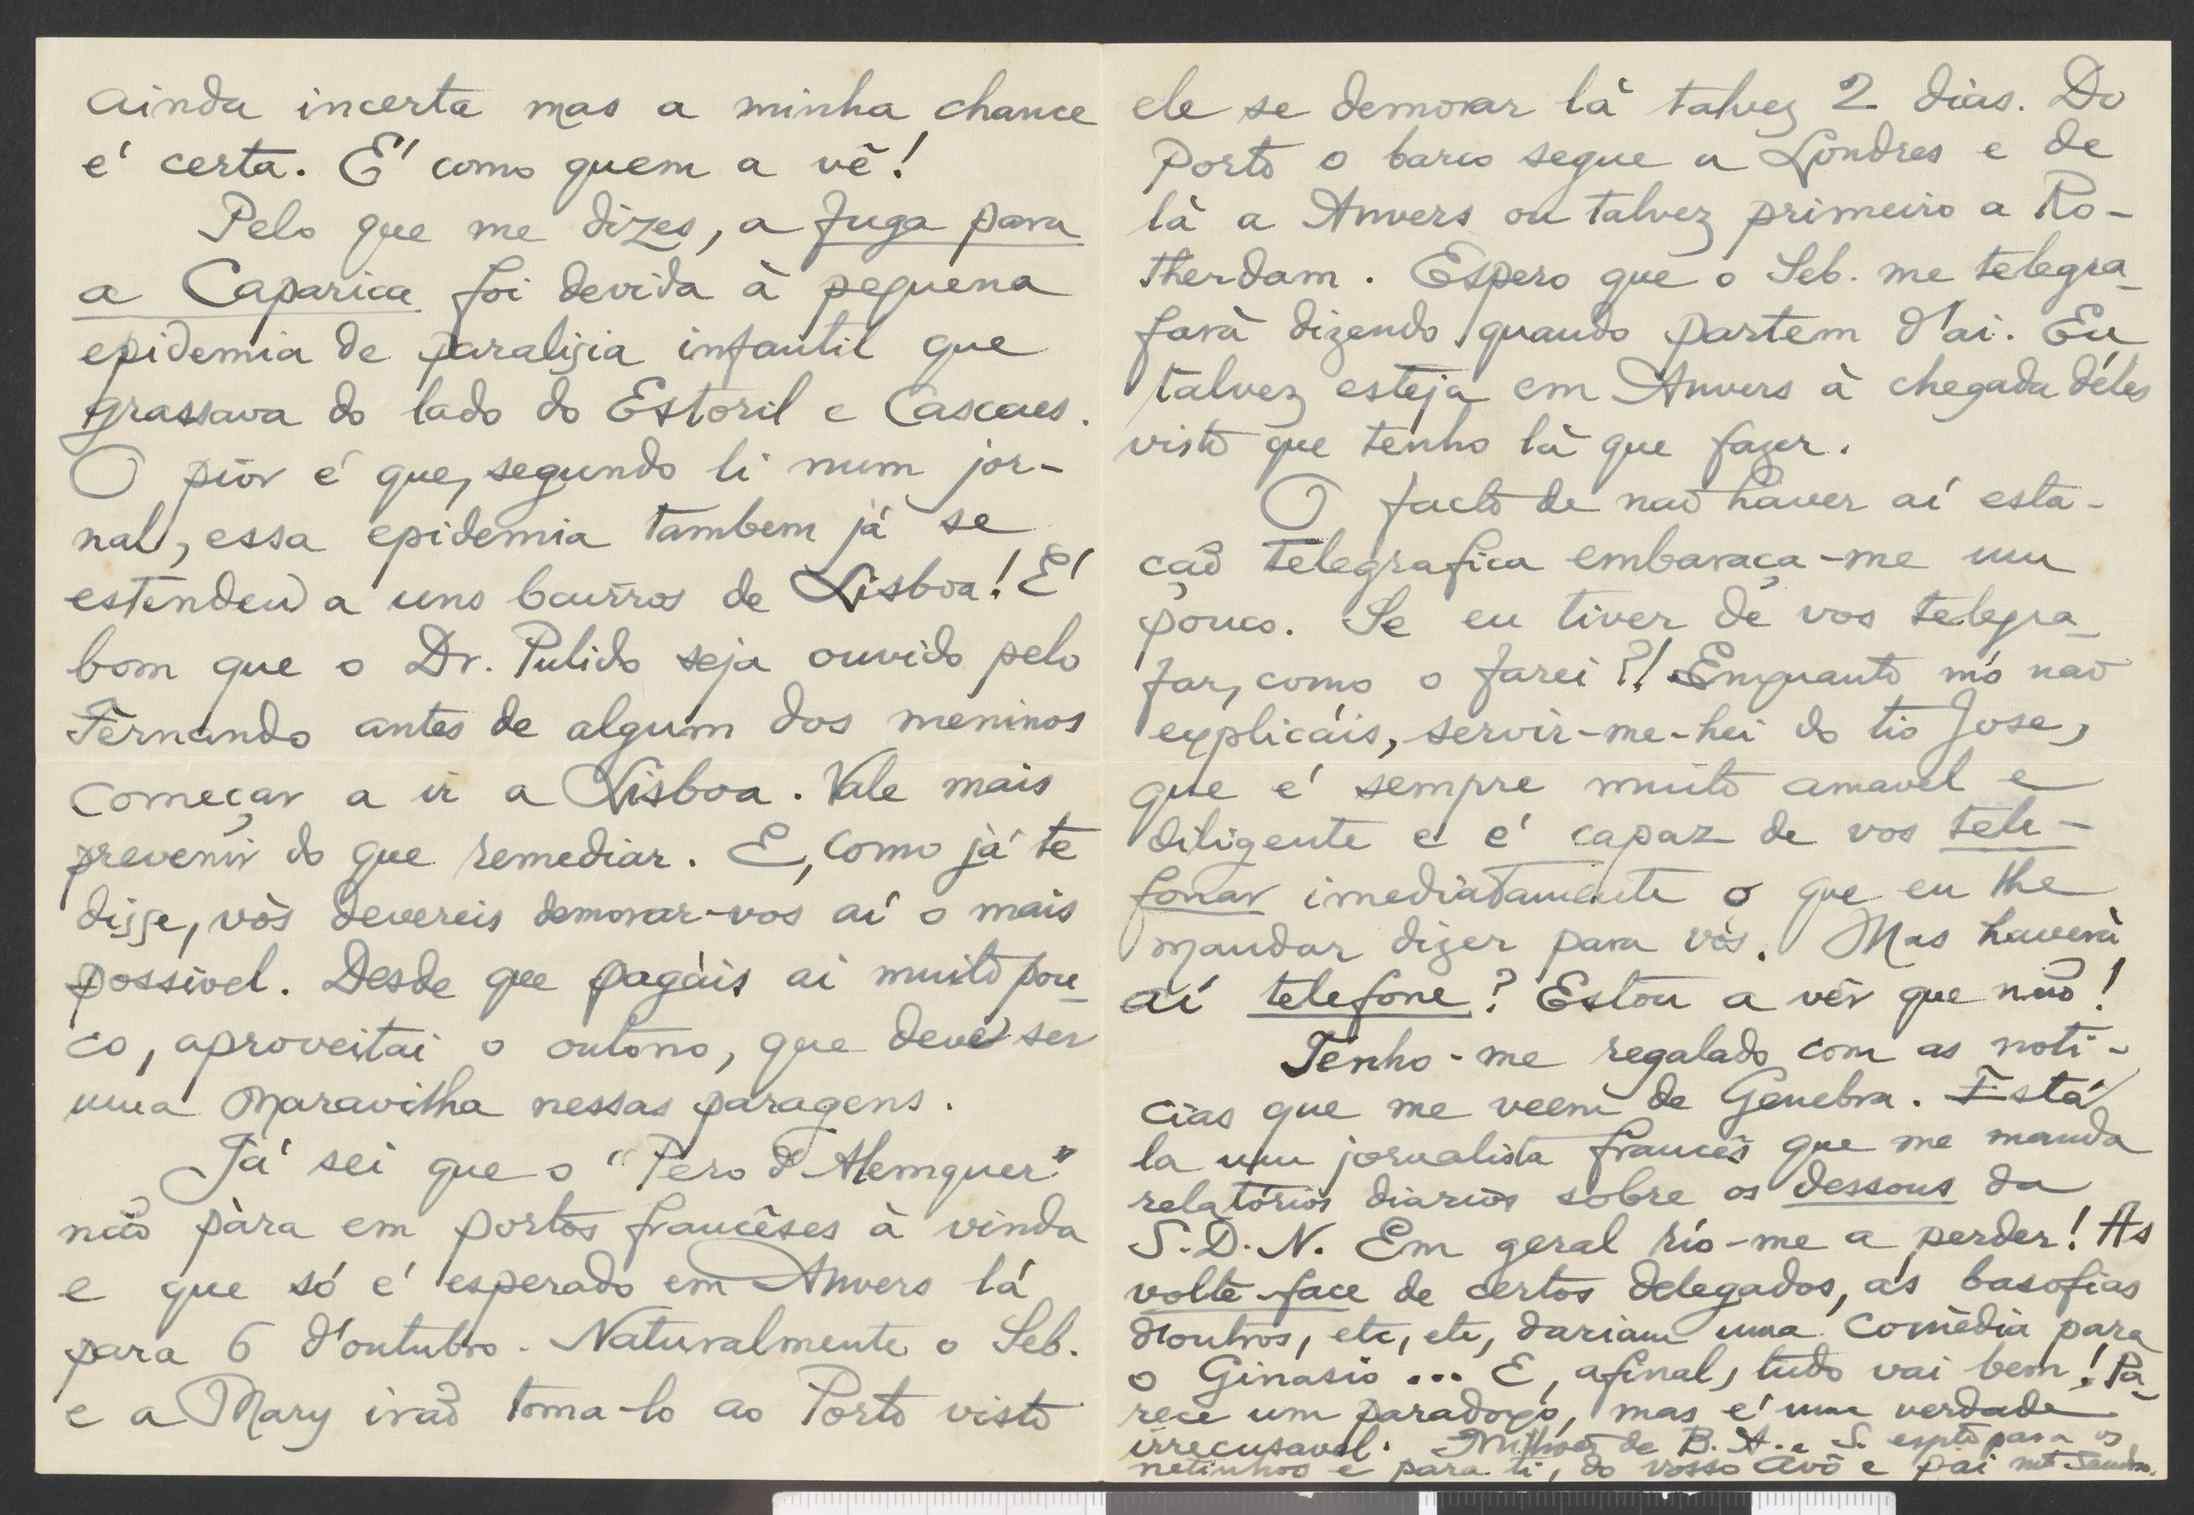 ainda incerta mas a minha chance
e' certa. E' como quem a vê!
Pelo que me dizes, a fuga para
a Caparica foi devida à pequena
epidemia de paralisia infantil que
grassava do lado do Estoril e Cascaes.
O piór é que, segundo li num jor-
nal, essa epidemia tambem já se
estendeu a uns bairros de Lisboa! E'
bom que o Dr. Pulido seja ouvido pelo
Fernando antes de algum dos meninos
começar a ir a Lisboa. Vale mais
prevenir do que remediar. E, como já te
disse, vós devereis demorar-vos aí o mais
possivel. Desde que pagáis ai muito pou-
co, aproveitai o outono, que deve ser
uma maravilha nessas paragens.
Já sei que o "Pero d'Alemquer"
não pára em portos francêses à vinda
e que só é esperado em Anvers lá
para 6 d'outubro. Naturalmente o Seb.
e a Mary irão toma-lo ao Porto visto
ele se demorar lá talvez 2 dias. Do
Porto o barco segue a Londres e de
lá a Anvers ou talvez primeiro a Ro-
therdam. Espero que o Seb. me telegra-
fará dizendo quando partem d'ai. Eu
talvez esteja em Anvers à chegada déles
visto que tenho lá que fazer.
O facto de não haver aí esta-
ção telegrafica embaraça-me um
pouco. Se eu tiver de vos telegra-
far, como o farei?! Enquanto m'o não
explicáis, servir-me-hei do tio Jose,
que é sempre muito amavel e
diligente e é capaz de vos tele-
fonar imediatamente o que eu lhe
mandar dizer para vós. Mas haverá
aí telefone? Estou a vêr que não!
Tenho-me regalado com as noti-
cias que me veem de Genebra. Está
la um jornalista francês que me manda
relatórios diarios sobre os dessous da
S.D.N. Em geral rio-me a perder! As
volte-face de certos delegados, as basofias
d'outros, etc, etc, dariam uma comédia para
o Ginasio... E, afinal, tudo vai bem! Pa-
rece um paradoxo, mas é uma verdade
irrecusavel. Milhões de B. A. e S. espto para os
netinhos e para ti, do vosso avô e pai mto